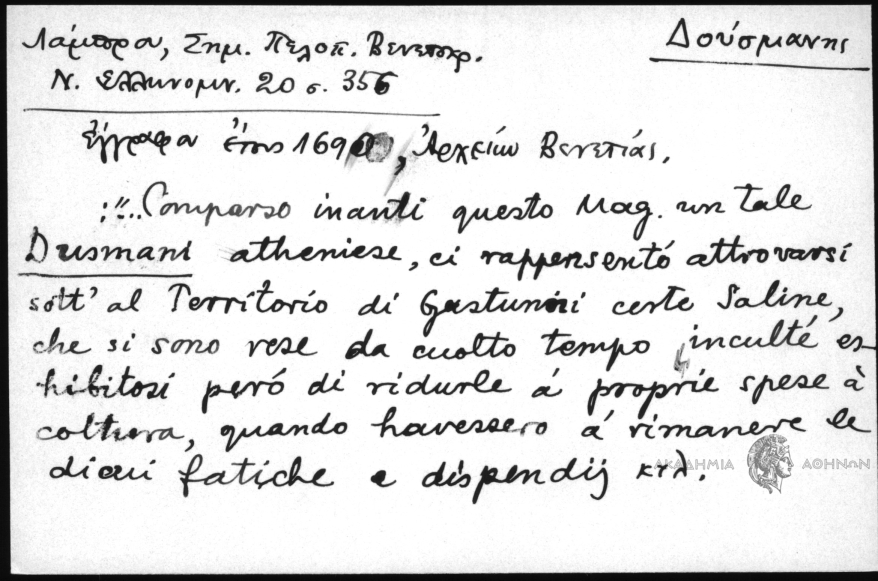 Λάμπρου, Σημ. Πελοπ. Βενετοκρ.
Δούσμανης
Ν. Ελληνομν. 20 σ. 356
Έγγραφα έτους 1690, Αρχείων Βενετίας.
:"..Comparso inanti questo Mag. un tale
Dusmani atheniese, ci rappensentó attrovarsi
sott' al Territorio di Gastunni certe Saline,
che si sono rese da cuolto tempo inculté es-
hibitosi peró di ridurle á proprie spese à
coltura, quando havessero á rimanere le
di fatiche e dispendij κτλ.
ΑΚΑΔΗΜΙΑ ΑΘΗΝΩΝ